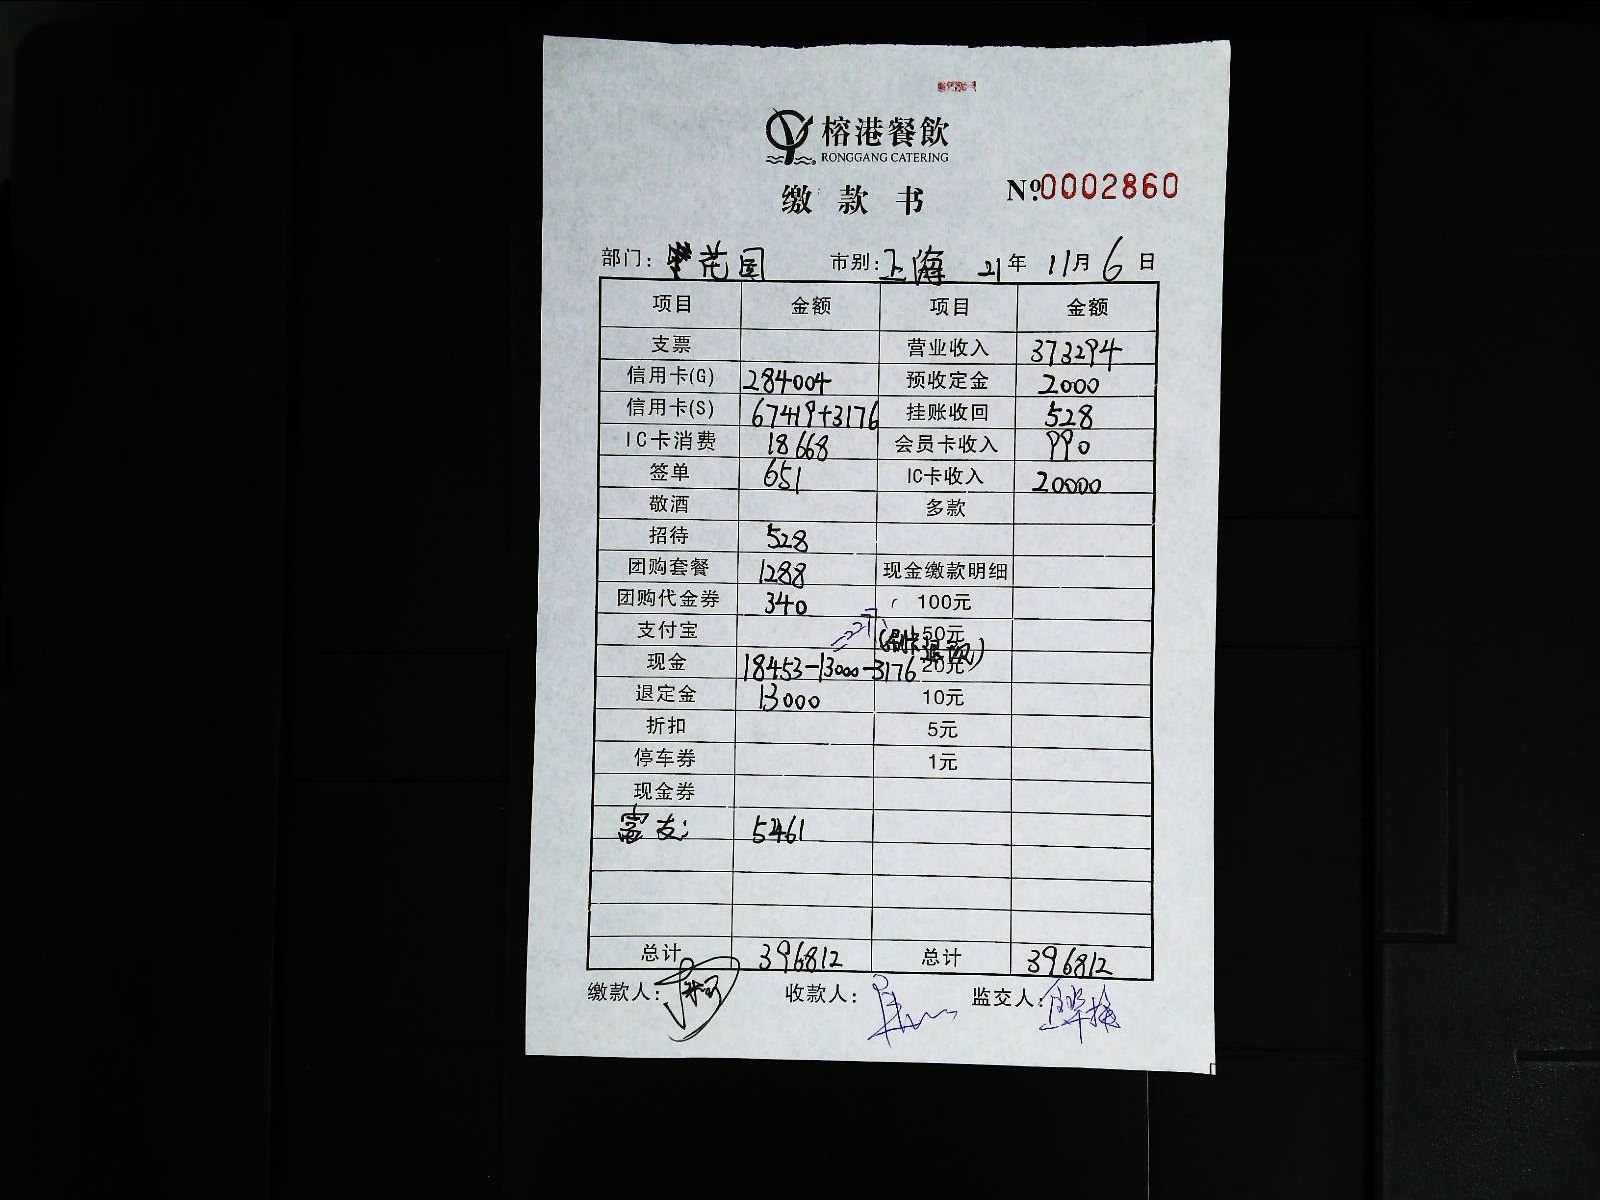 榕港餐飲
RONGGANG CATERING
缴款书 Nº:0002860
部门: 花园 市别: 上海 21年 11月 6日
项目 金额 项目 金额
支票 营业收入 373294
信用卡(G) 284004 预收定金 2000
信用卡(S) 67419+3176 挂账收回 528
IC卡消费 18668 会员卡收入 990
签单 651 IC卡收入 20000
敬酒 多款
招待 528
团购套餐 1288 现金缴款明细
团购代金券 340 100元
支付宝 =2277 50元
现金 18453-13000-3176 20元
退定金 13000 10元
折扣 5元
停车券 1元
现金券
5461
总计 396812 总计 396812
缴款人: 收款人: 监交人: